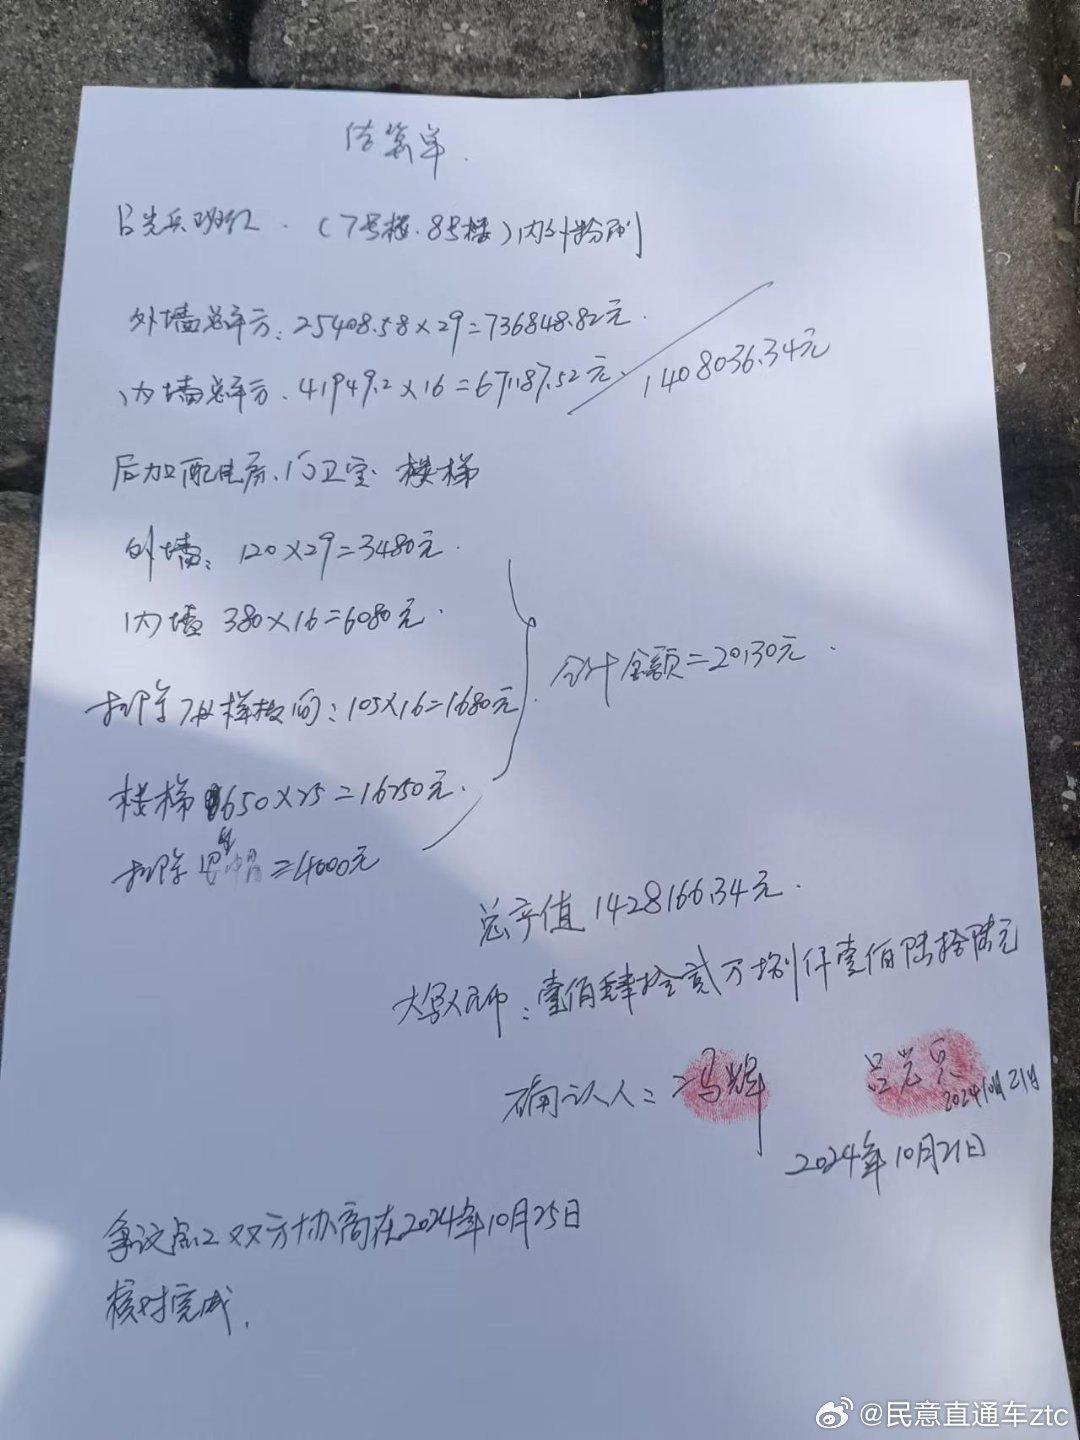 结算单.
吕光兵班组. (7号楼.8号楼)内外粉刷
外墙总平方:25408.58×29=736848.82元.
内墙总平方.41949.2×16=671187.52元. 1408036.34元
后加配电房、门卫室. 楼梯
外墙:120×29=3480元.
内墙380×16=6080元.
扣除 样板间:105×16=1680元.
合计金额=20130元.
楼梯650×25=16250元.
扣除 =4000元
总产值1428166.34元.
大写人民币:壹佰肆拾贰万捌仟壹佰陆拾陆元
确认人:冯辉 吕光兵
2024年10月21日
2024年10月21日
争议点:双方协商在2024年10月25日
核对完成.
@民意直通车ztc